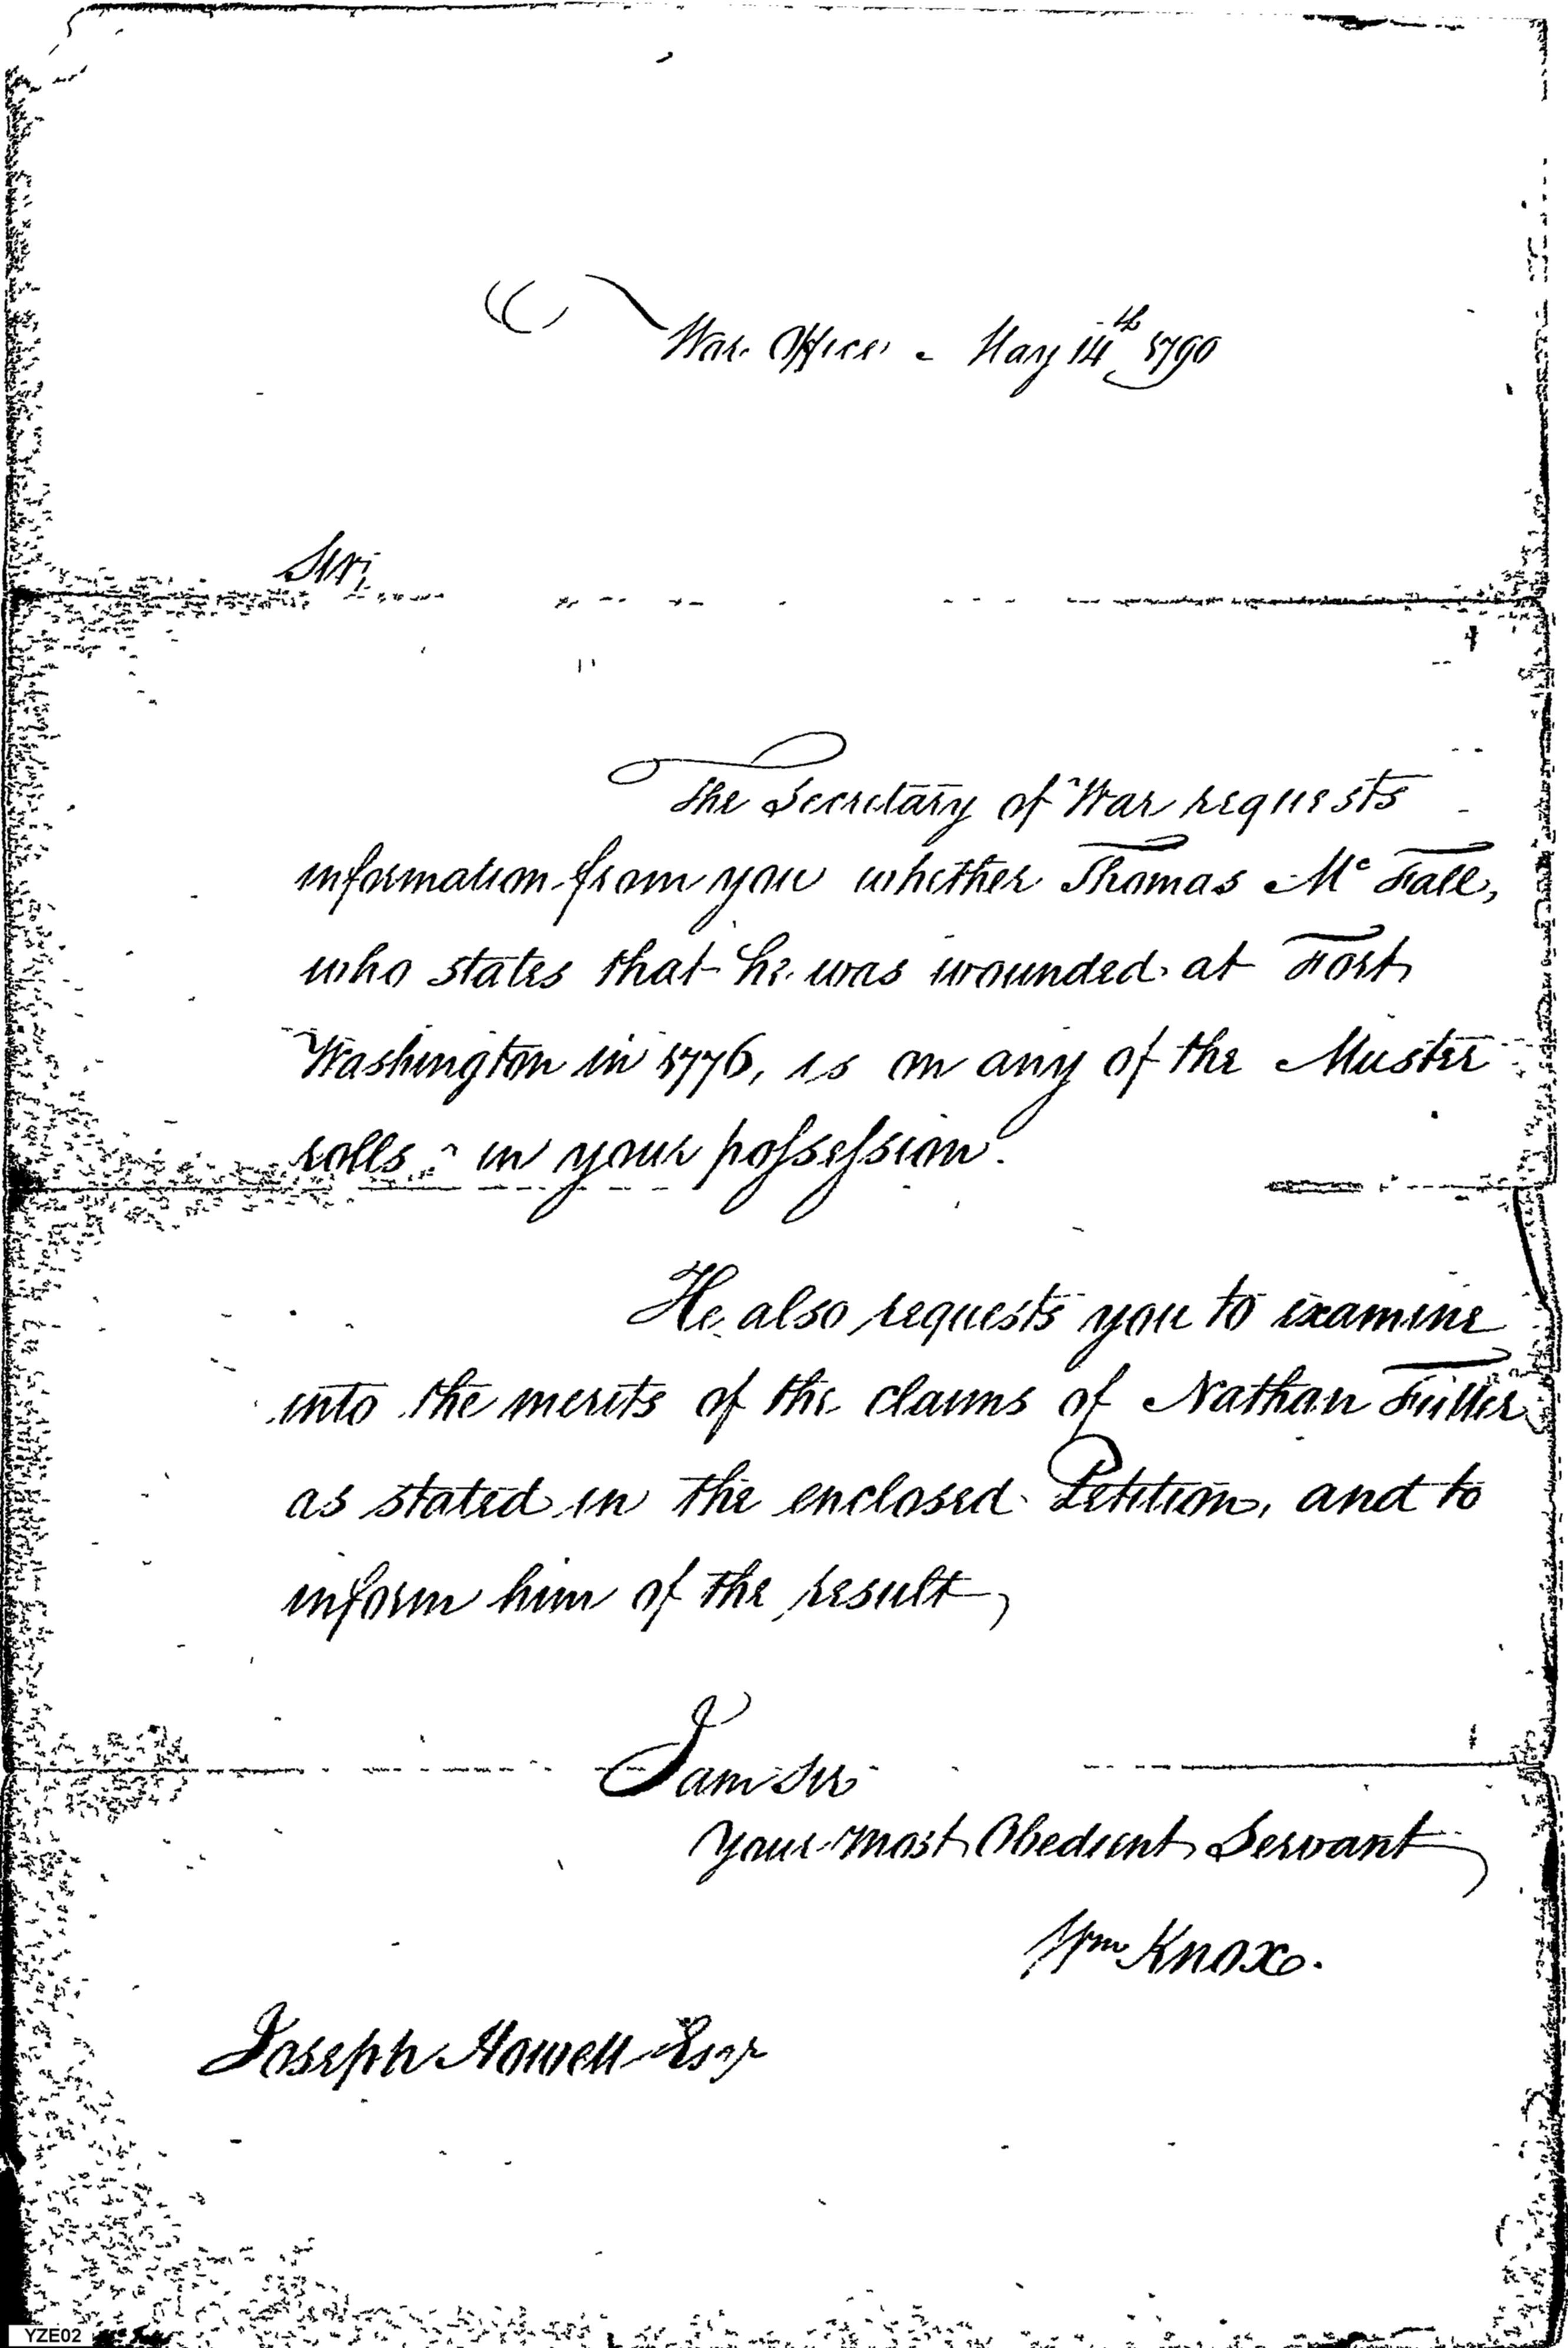 War Office - May 14th 1790
Sir,
The Secretary of War requests
information from you whether Thomas Mc Fall,
who states that he was wounded at Fort
Washington in 1776, is on any of the Muster
rolls in your possession.
He also requests you to examine
into the merits of the claims of Nathan Fuller
as stated in the enclosed Petition, and to
inform him of the result,
I am Sir
Your Most Obedient Servant
Wm Knox.
Joseph Howell Esqr
YZE02